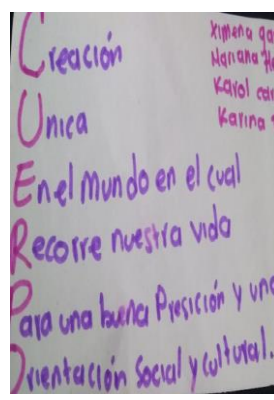 Creación
Unica
En el mundo en el cual
Recorre nuestra vida
Para una buena Presición y una
Orientación Social y cultural.
Ximena
Karol
Karina